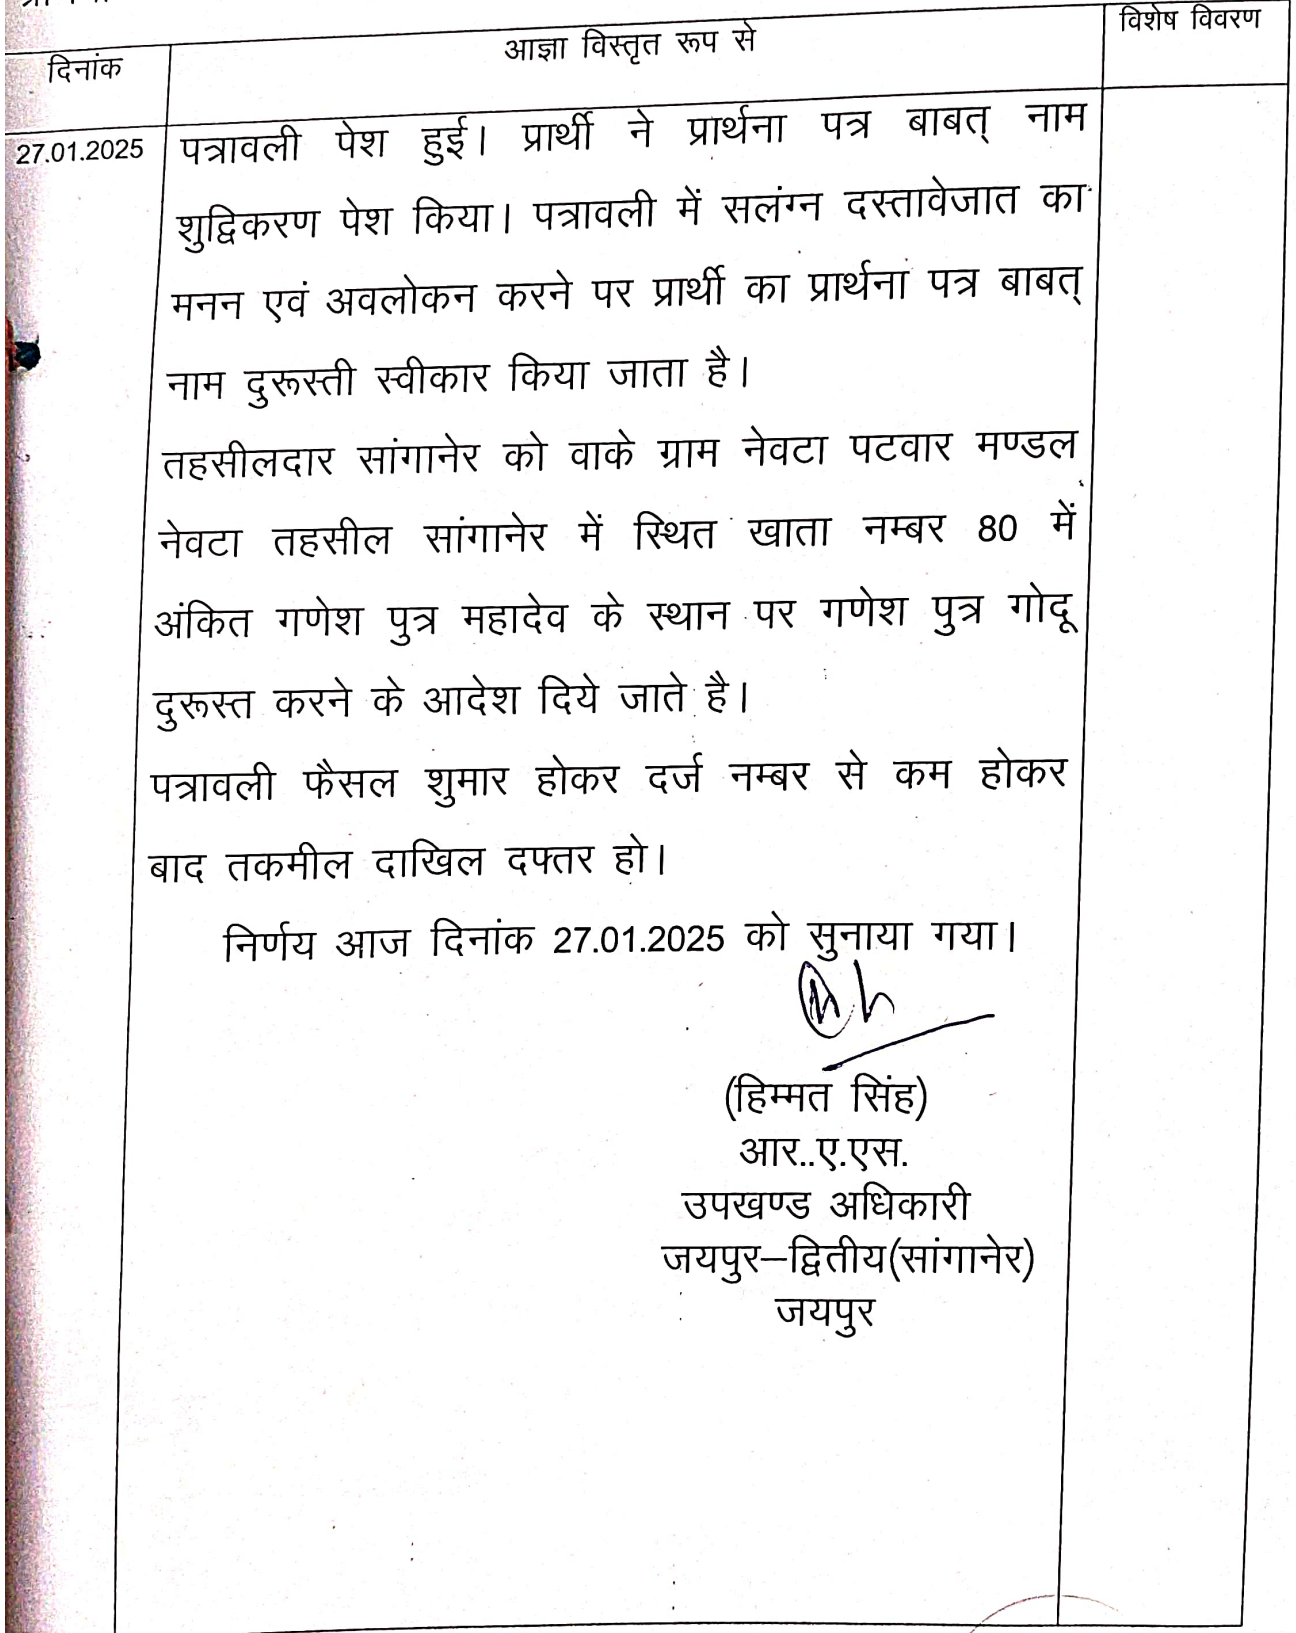 दिनांक
आज्ञा विस्तृत रूप से
विशेष विवरण
27.01.2025
पत्रावली पेश हुई। प्रार्थी ने प्रार्थना पत्र बाबत् नाम
शुद्विकरण पेश किया। पत्रावली में सलंग्न दस्तावेजात का
मनन एवं अवलोकन करने पर प्रार्थी का प्रार्थना पत्र बाबत्
नाम दुरूस्ती स्वीकार किया जाता है।
तहसीलदार सांगानेर को वाके ग्राम नेवटा पटवार मण्डल
नेवटा तहसील सांगानेर में स्थित खाता नम्बर 80 में
अंकित गणेश पुत्र महादेव के स्थान पर गणेश पुत्र गोदू
दुरूस्त करने के आदेश दिये जाते है।
पत्रावली फैसल शुमार होकर दर्ज नम्बर से कम होकर
बाद तकमील दाखिल दफ्तर हो।
निर्णय आज दिनांक 27.01.2025 को सुनाया गया।
(हिम्मत सिंह)
आर..ए.एस.
उपखण्ड अधिकारी
जयपुर–द्वितीय(सांगानेर)
जयपुर